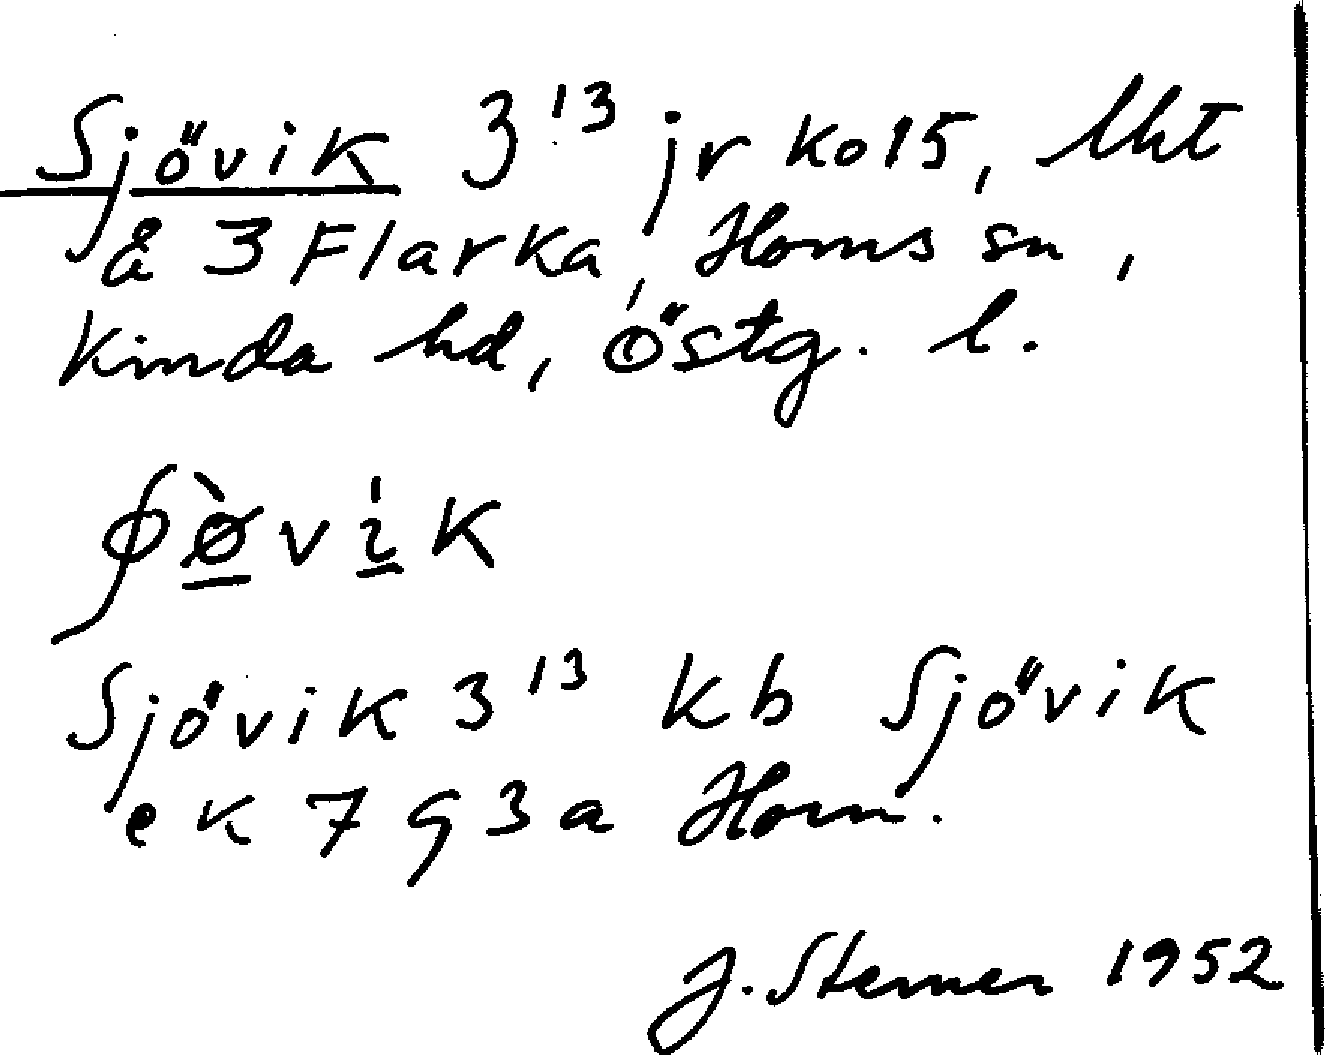 Sjövik 3¹³ jr ko 15, lht
å 3 Flarka, Horns sn,
Kinda hd, Östg. l.
Sjövik 3¹³ kb Sjövik
ek 7 g 3 a Horn.
J. Sterner 1952